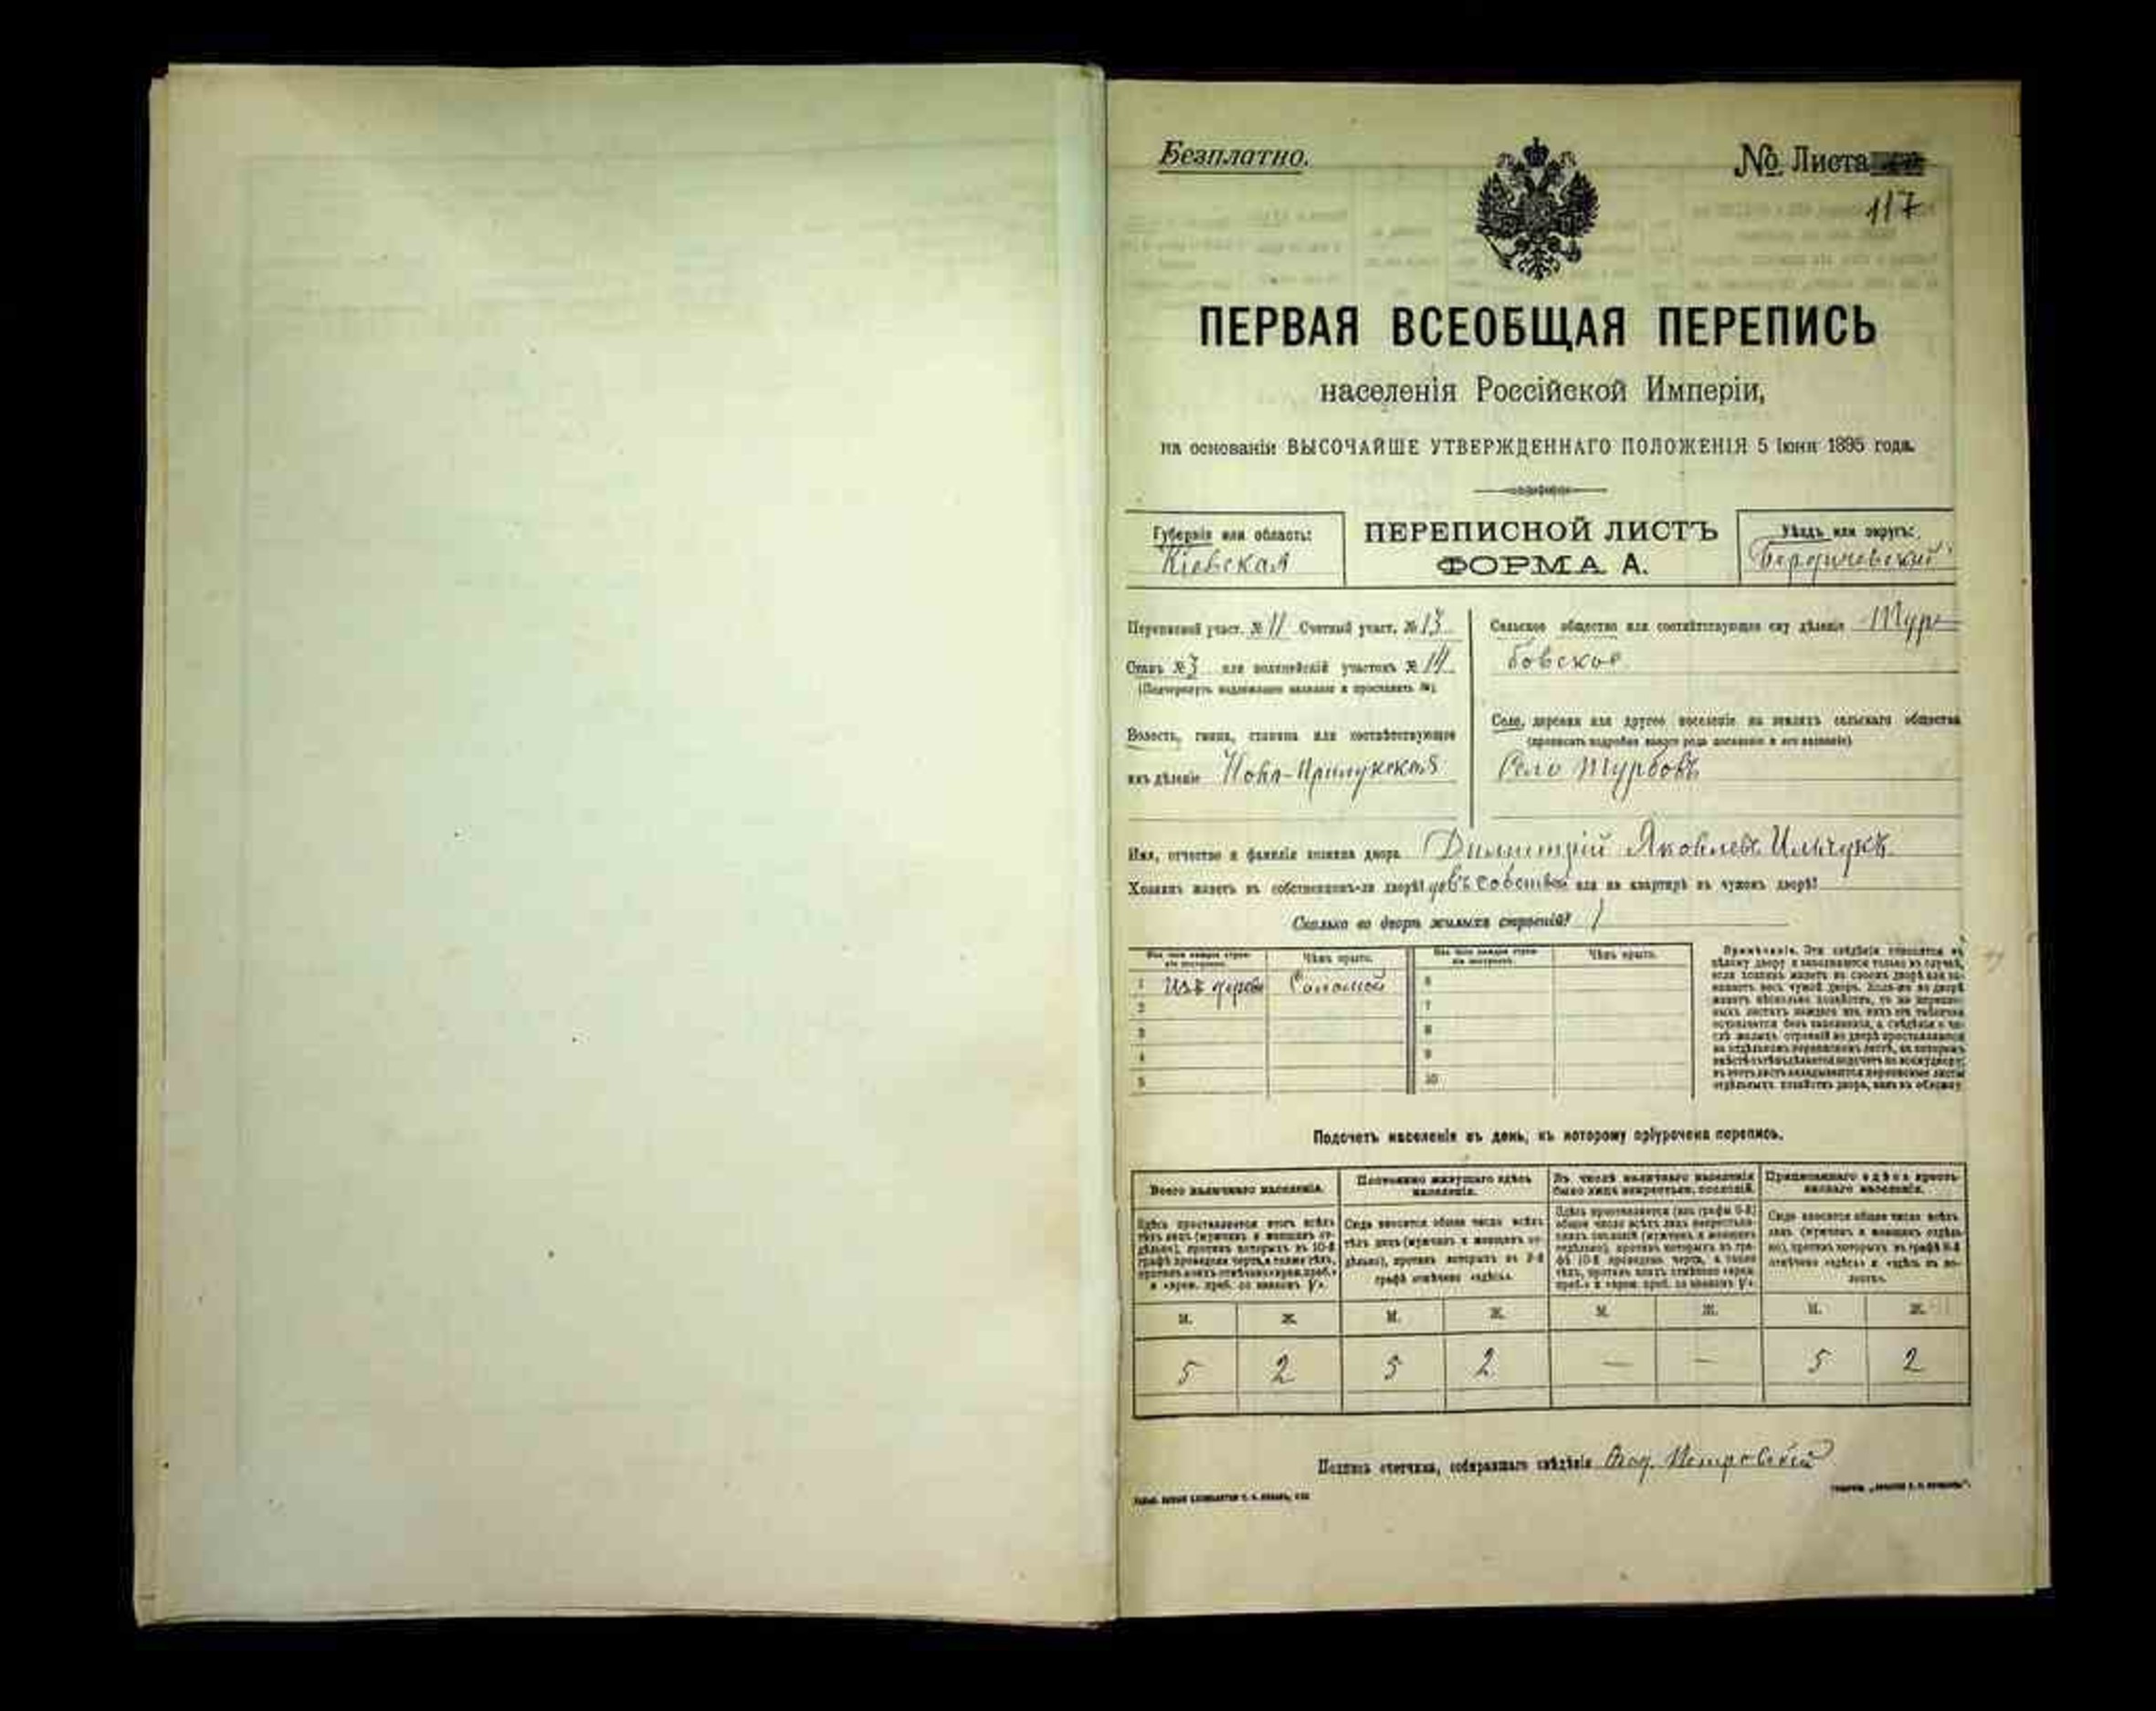 Безплатно.
№ Листа
117
ПЕРВАЯ ВСЕОБЩАЯ ПЕРЕПИСЬ
населенія Россійской Имперіи,
на основаніи ВЫСОЧАЙШЕ УТВЕРЖДЕННАГО ПОЛОЖЕНІЯ 5 Іюня 1895 года.
Губернія или область:
Кіевская
ПЕРЕПИСНОЙ ЛИСТЪ
ФОРМА А.
Уѣздъ или округъ:
Бердичевскій
Переписной участ. № 11 Счетный участ. № 13
Станъ № 3 или полицейскій участокъ № 14
(Подчеркнуть надлежащее названіе и проставить №)
Волость, гмина, станица или соотвѣтствующее
имъ дѣленіе Ново-Прилукская
Сельское общество или соотвѣтствующее ему дѣленіе Тур-
бовское
Село, деревня или другое поселеніе на земляхъ сельскаго общества
(прописать подробно какого рода поселеніе и его названіе)
Село Турбовъ
Имя, отчество и фамилія хозяина двора Димитрій Яковлевъ Ильчукъ
Хозяинъ живетъ въ собственномъ-ли дворѣ? или на квартирѣ въ чужомъ дворѣ?
Сколько во дворѣ жилыхъ строеній? 1
Изъ чего каждое строе-
ніе построено.
Чѣмъ крыто.
Изъ чего каждое строе-
ніе построено.
Чѣмъ крыто.
1 Изъ дерева Соломой 6
2 7
3 8
4 9
5 10
Примѣчаніе. Эти свѣдѣнія относятся къ
цѣлому двору и заполняются только въ случаѣ,
если хозяинъ живетъ въ своемъ дворѣ или за-
нимаетъ весь чужой дворъ. Если-же во дворѣ
живетъ нѣсколько хозяйствъ, то на перепис-
ныхъ листахъ каждаго изъ нихъ эта табличка
оставляется безъ заполненія, а свѣдѣнія о чи-
слѣ жилыхъ строеній во дворѣ проставляются
на отдѣльномъ переписномъ листѣ, на которомъ
Подсчетъ населенія въ день, къ которому пріурочена перепись.
Всего наличнаго населенія.
Постоянно живущаго здѣсь
населенія.
Въ числѣ наличнаго населенія
было лицъ некрестьян. сословій.
Приписаннаго здѣсь кресть-
янскаго населенія.
Здѣсь проставляется итогъ всѣхъ
тѣхъ лицъ (мужчинъ и женщинъ от-
дѣльно), противъ которыхъ въ 10-й
графѣ проведена черта, а также тѣхъ,
противъ коихъ отмѣчено «врем. преб.»
и «врем. преб. со знакомъ V».
Сюда вносится общее число всѣхъ
тѣхъ лицъ (мужчинъ и женщинъ от-
дѣльно), противъ которыхъ въ 9-й
графѣ отмѣчено «здѣсь».
Сюда вносится общее число всѣхъ
лицъ (мужчинъ и женщинъ отдѣль-
но), противъ которыхъ въ графѣ 8-й
отмѣчено «здѣсь» и «здѣсь въ во-
лости».
М. Ж. М. Ж. М. Ж. М. Ж.
5 2 5 2 — — 5 2
Подпись счетчика, собиравшаго свѣдѣнія